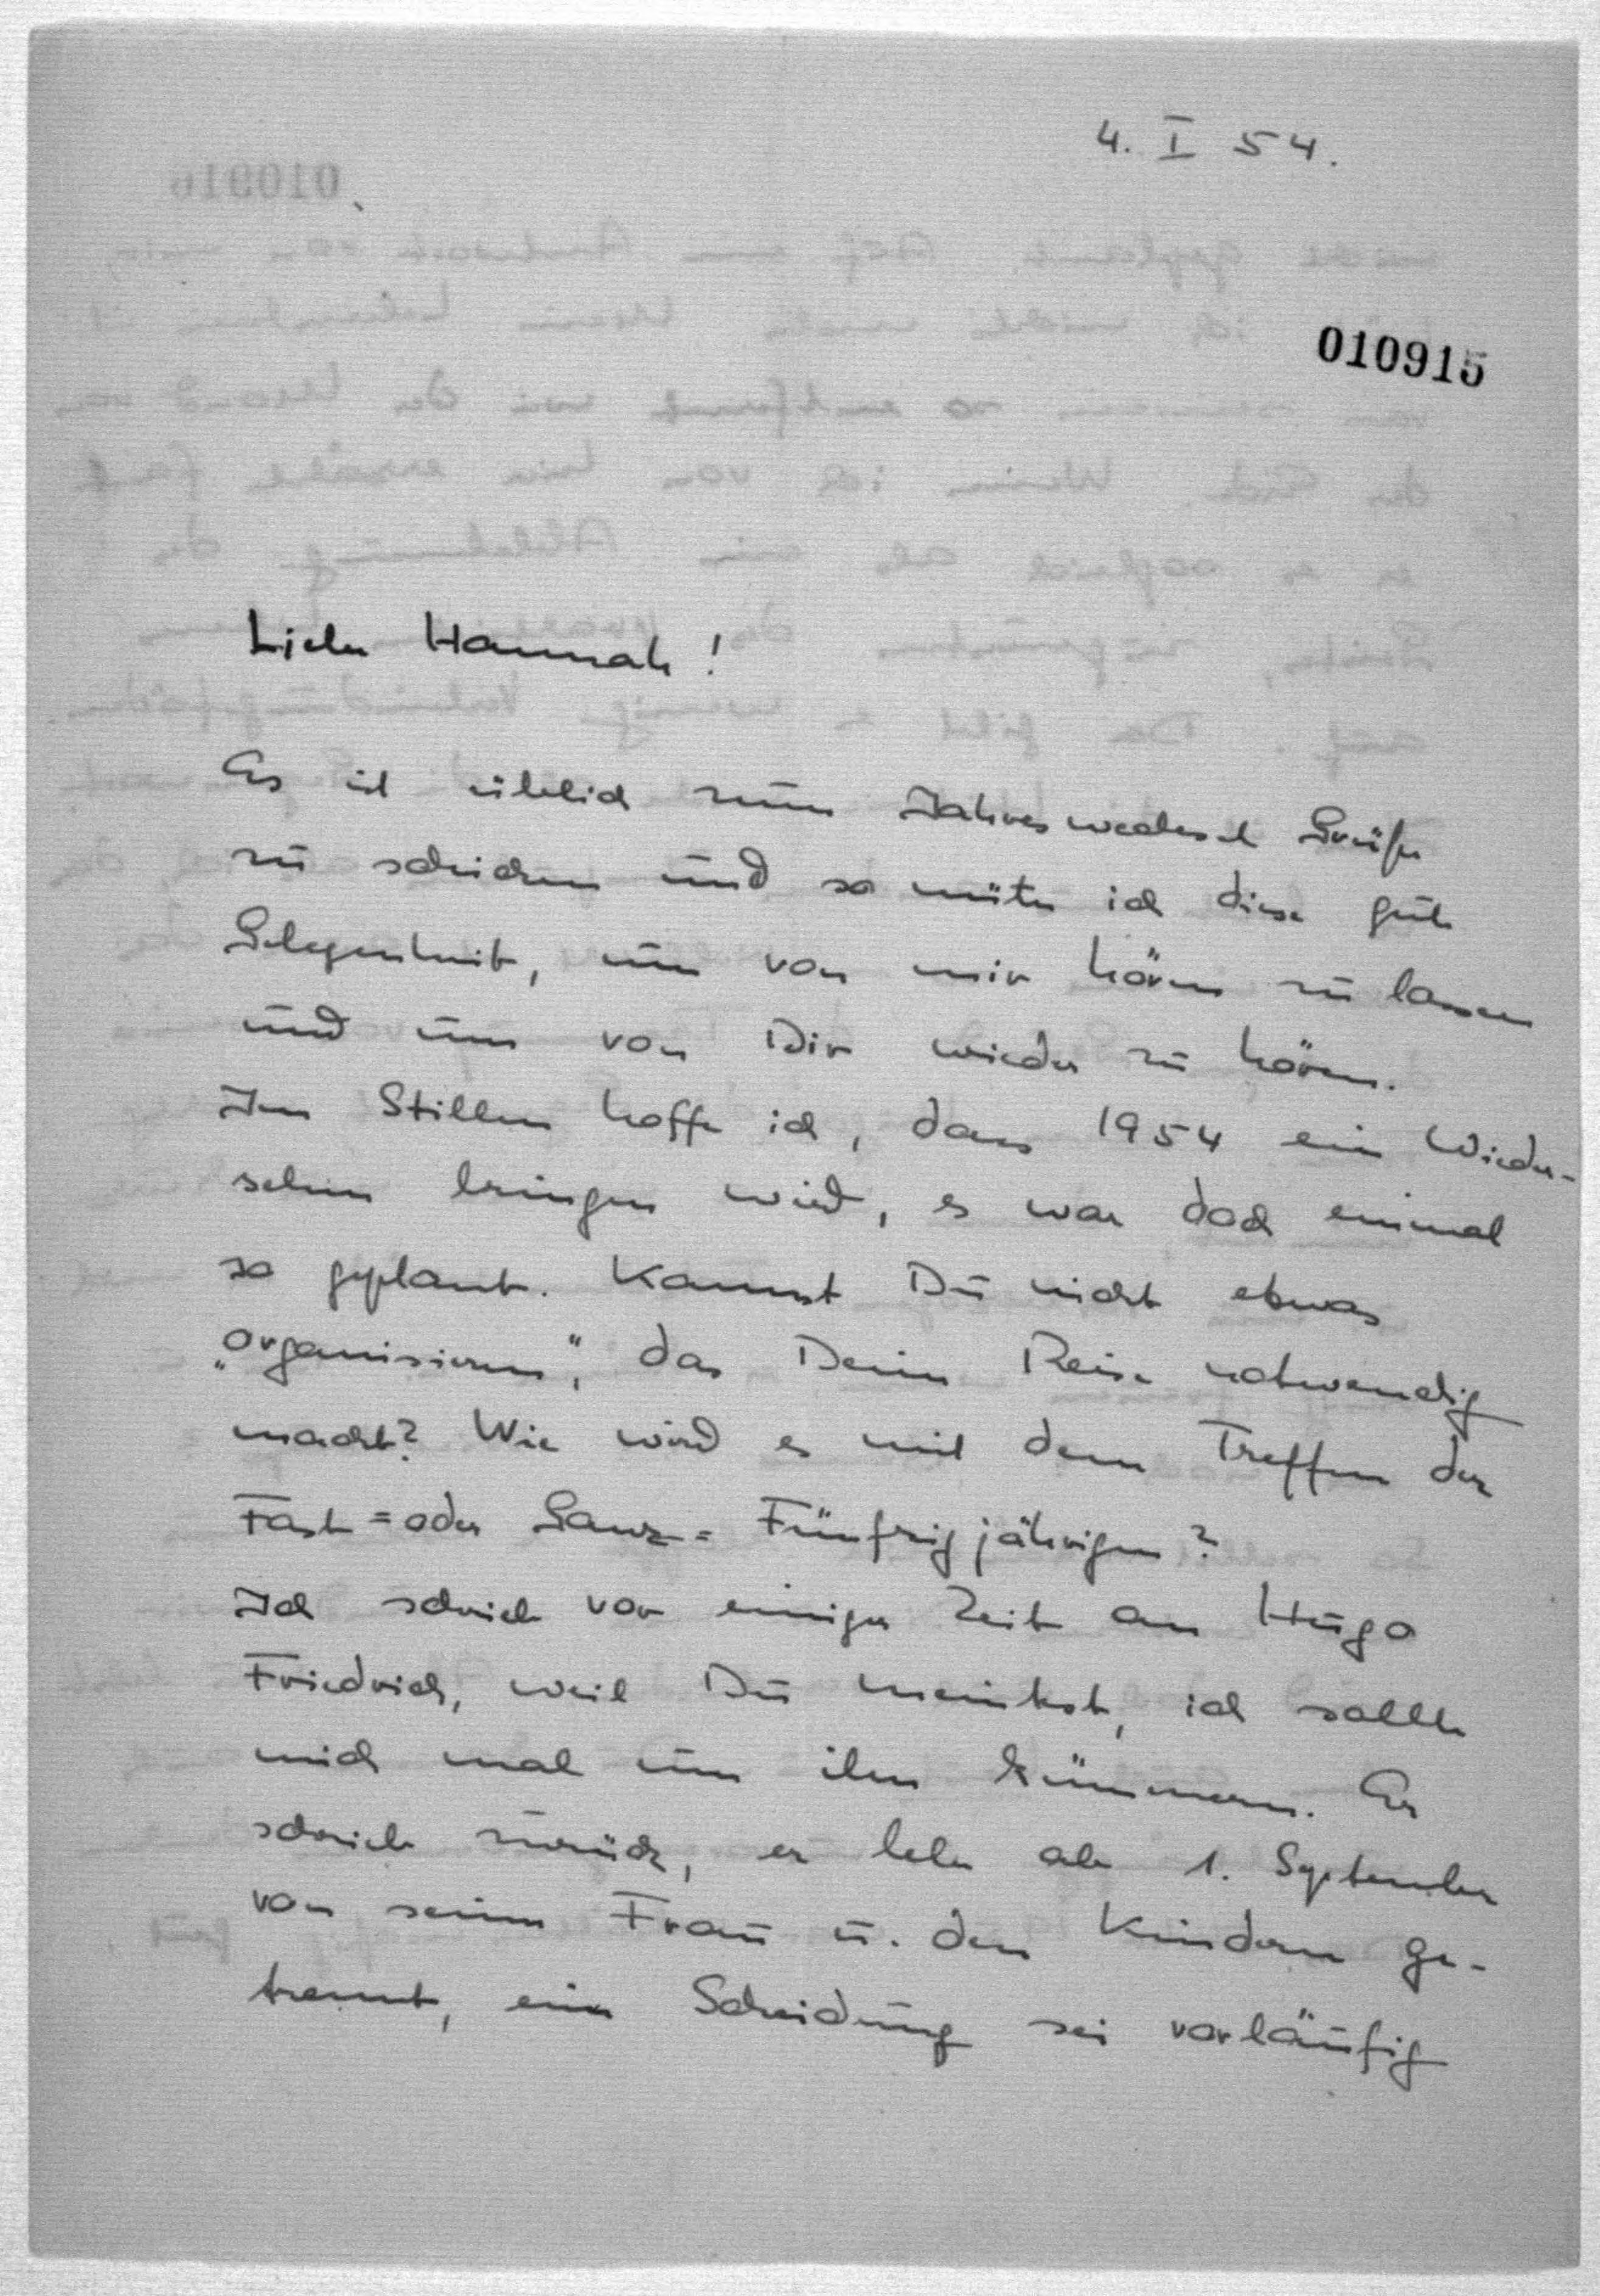 4. I 54.
010915
Liebe Hannah!
Es ist üblich zum Jahreswechsel Grüße
zu schicken und so nütze ich diese gute
Gelegenheit, um von mir hören zu lassen
und um von Dir wieder zu hören.
Im Stillen hoffe ich, dass 1954 ein Wieder-
sehen bringen wird, es war doch einmal
so geplant. Kannst Du nicht etwas
„organisieren“, das Deine Reise notwendig
macht? Wie wird es mit dem Treffen der
Fast= oder Ganz= Fünfzigjährigen?
Ich schrieb vor einiger Zeit an Hugo
Friedrich, weil Du meintest, ich sollte
mich mal um ihn kümmern. Er
schrieb zurück, er lebe ab 1. September
von seiner Frau u. den Kindern ge-
trennt, eine Scheidung sei vorläufig